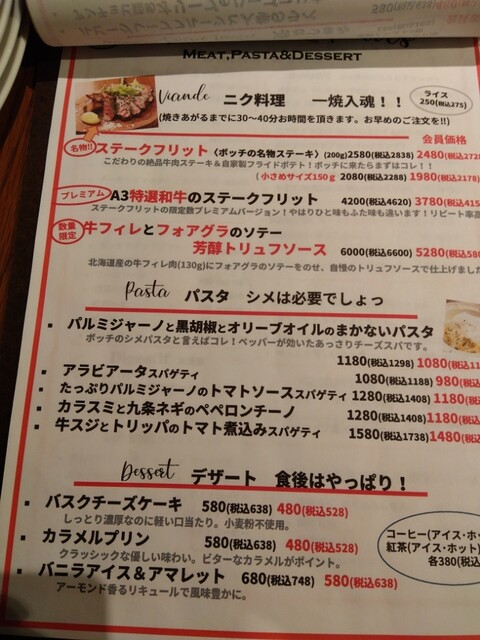 MEAT,PASTA&DESSERT
Viande ニク料理 一焼入魂！！
ライス
250(税込275)
(焼きあがるまでに30～40分お時間を頂きます。お早めのご注文を!!)
会員価格
名物!!
ステークフリット〈ボッチの名物ステーキ〉(200g)2580(税込2838) 2480(税込272
こだわりの絶品牛肉ステーキ＆自家製フライドポテト！ボッチに来たらまずはコレ！！
(小さめサイズ150g 2080(税込2288) 1980(税込2178)
プレミアム
A3特選和牛のステークフリット 4200(税込4620) 3780(税込415
ステークフリットの限定数プレミアムバージョン！やはりひと味もふた味も違います！リピート率高
数量
限定
牛フィレとフォアグラのソテー
芳醇トリュフソース 6000(税込6600) 5280(税込580
北海道産の牛フィレ肉(130g)にフォアグラのソテーをのせ、自慢のトリュフソースで仕上げました
Pasta パスタ シメは必要でしょっ
▪ パルミジャーノと黒胡椒とオリーブオイルのまかないパスタ
ボッチのシメパスタと言えばコレ！ペッパーが効いたあっさりチーズスパです。
1180(税込1298) 1080(税込11
▪ アラビアータスパゲティ 1080(税込1188) 980(税込
▪ たっぷりパルミジャーノのトマトソーススパゲティ 1280(税込1408) 1180(
▪ カラスミと九条ネギのペペロンチーノ 1280(税込1408)1180(税
▪ 牛スジとトリッパのトマト煮込みスパゲティ 1580(税込1738)1480(税
Dessert デザート 食後はやっぱり！
▪ バスクチーズケーキ 580(税込638) 480(税込528)
しっとり濃厚なのに軽い口当たり。小麦粉不使用。
▪ カラメルプリン 580(税込638) 480(税込528)
クラッシックな優しい味わい。ビターなカラメルがポイント。
▪ バニラアイス＆アマレット 680(税込748) 580(税込638)
アーモンド香るリキュールで風味豊かに。
コーヒー(アイス・ホ
紅茶(アイス・ホット)
各380(税込